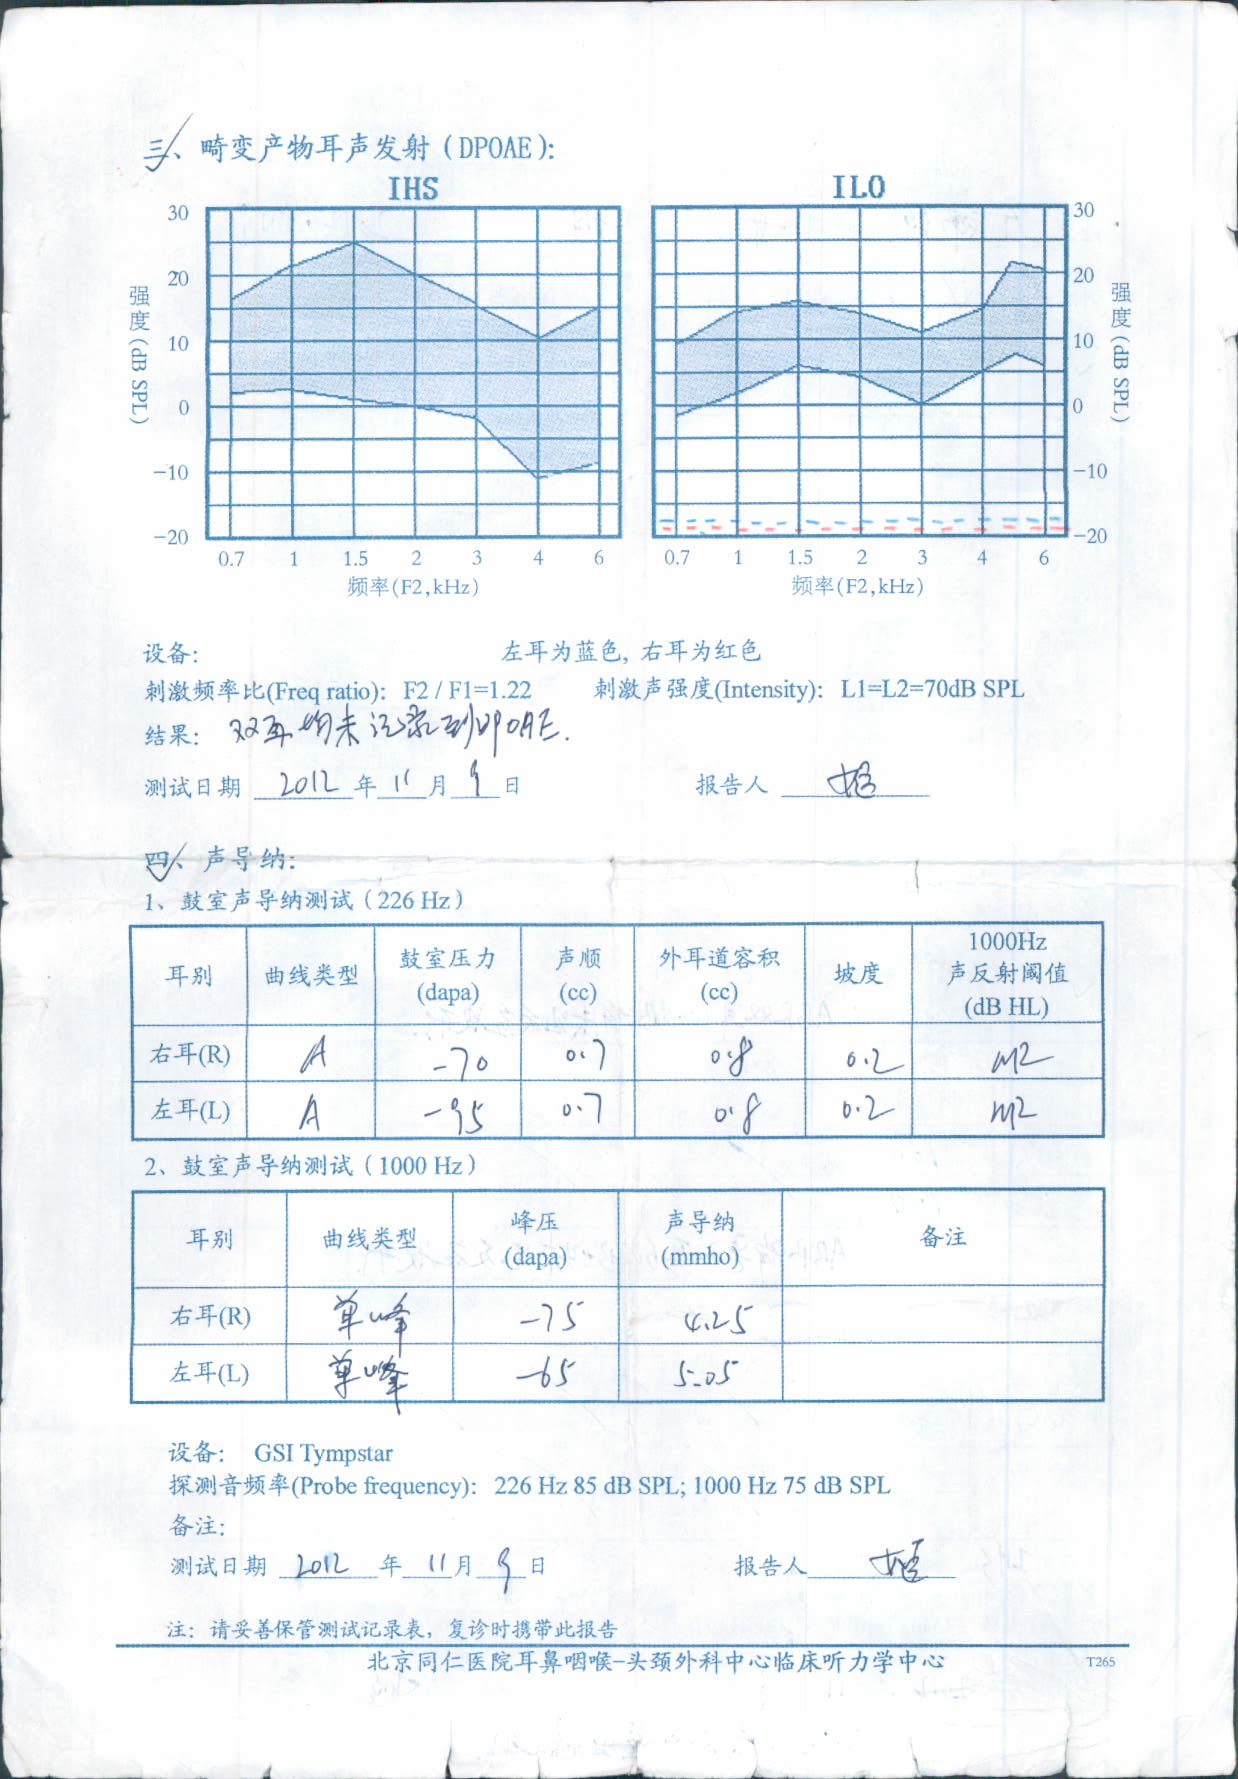 三、畸变产物耳声发射(DPOAE):
IHS
ILO
30
20
10
0
-10
-20
强度(dB SPL)
0.7 1 1.5 2 3 4 6
频率(F2,kHz)
30
20
10
0
-10
-20
强度(dB SPL)
0.7 1 1.5 2 3 4 6
频率(F2,kHz)
设备: 左耳为蓝色, 右耳为红色
刺激频率比(Freq ratio): F2 / F1=1.22 刺激声强度(Intensity): L1=L2=70dB SPL
结果: 双耳均未记录到DPOAE.
测试日期 2012 年 11 月 9 日 报告人
四、声导纳:
1、鼓室声导纳测试(226 Hz)
耳别 曲线类型 鼓室压力(dapa) 声顺(cc) 外耳道容积(cc) 坡度 1000Hz声反射阈值(dB HL)
右耳(R) A -70 0.7 0.8 0.2
左耳(L) A -95 0.7 0.8 0.2
2、鼓室声导纳测试(1000 Hz)
耳别 曲线类型 峰压(dapa) 声导纳(mmho) 备注
右耳(R) 单峰 -75 4.25
左耳(L) 单峰 -65 5.05
设备: GSI Tympstar
探测音频率(Probe frequency): 226 Hz 85 dB SPL; 1000 Hz 75 dB SPL
备注:
测试日期 2012 年 11 月 9 日 报告人
注: 请妥善保管测试记录表, 复诊时携带此报告
北京同仁医院耳鼻咽喉-头颈外科中心临床听力学中心
T265